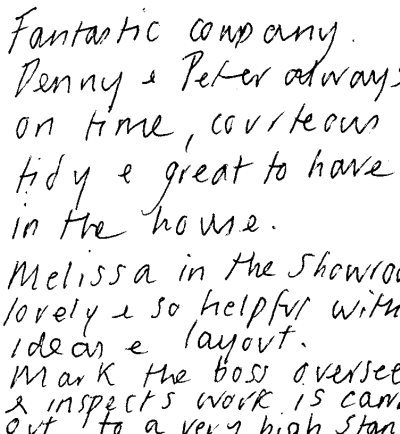 Fantastic company.
Denny & Peter always
on time, courteous
tidy & great to have
in the house.
Melissa in the Showroo
lovely & so helpful with
ideas & layout.
Mark the boss oversee
& inspects work is carr
out to a very high stan